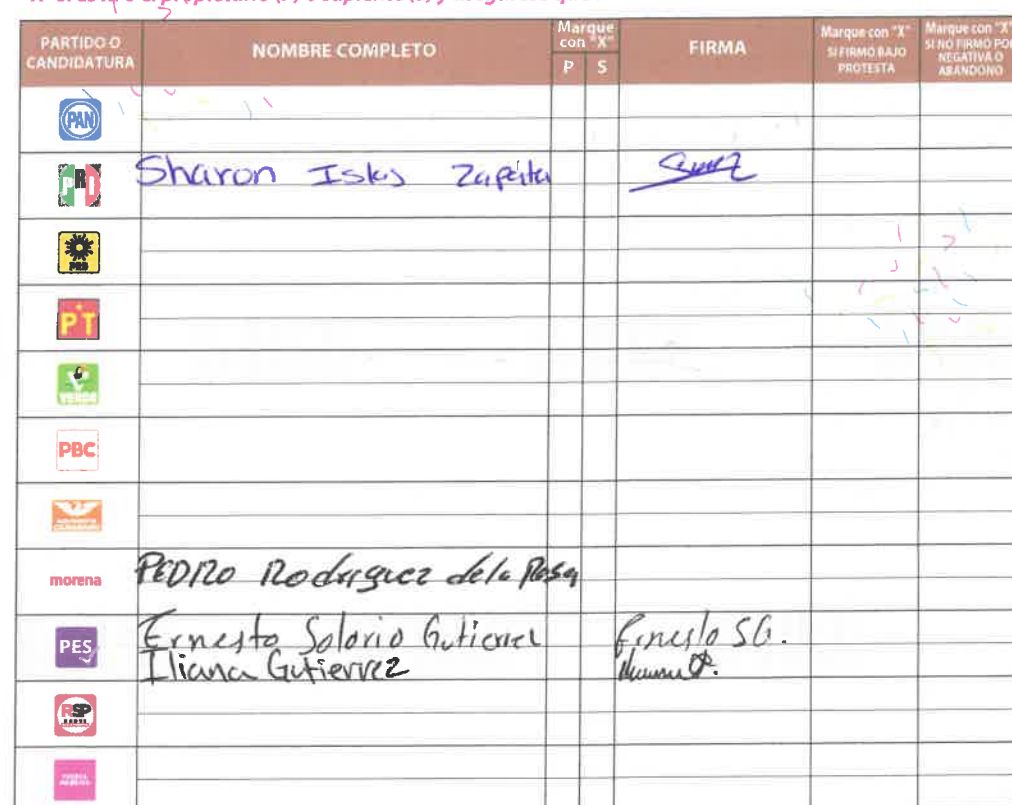 PARTIDO O CANDIDATURA
NOMBRE COMPLETO
Marque con "X"
P S
FIRMA
Marque con "X" SI FIRMÓ BAJO PROTESTA
Marque con "X" SI NO FIRMÓ POR NEGATIVA O ABANDONO
PAN
PRI Sharon Islas Zapata
PRD
PT
VERDE
PBC
morena PEDRO Rodriguez de la Rosa
PES Ernesto Solorio Gutierrez Ernesto SG.
Iliana Gutierrez
RSP